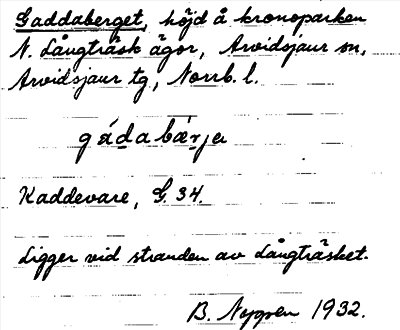 Gaddaberget, höjd å kronoparken
N. Långträsk ägor, Arvidsjaur sn,
Arvidsjaur tg, Norrb. l.
gádabárja
Kaddevare, G. 34.
Ligger vid stranden av Långträsket.
B. Nygren 1932.